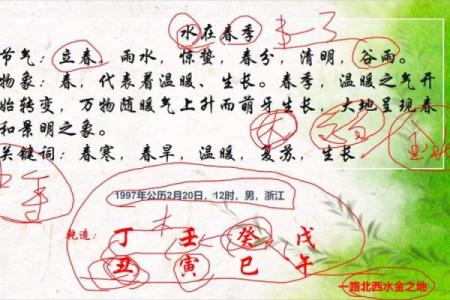 水在春季
节气：立春，雨水，惊蛰，春分，清明，谷雨。
物象：春，代表着温暖、生长。春季，温暖之气开
始转变，万物随暖气上升而萌牙生长，大地呈现春
和景明之象。
关键词：春寒，春旱，温暖，复苏，生长
1997年公历2月20日，12时，男，浙江
乾造：丁 壬 癸 戊
丑 寅 巳 午
一路北西水金之地